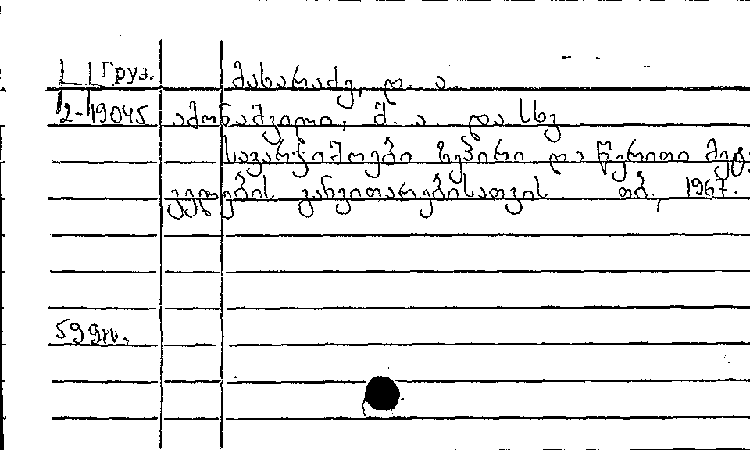 Груз. მახარაძე, დ. ა.
2-19045 ამონაშვილი, შ. ა. და სხვ
სავარჯიშოები ზეპირი და წერითი მეტ
ყველების განვითარებისათვის თბ., 1967.
599